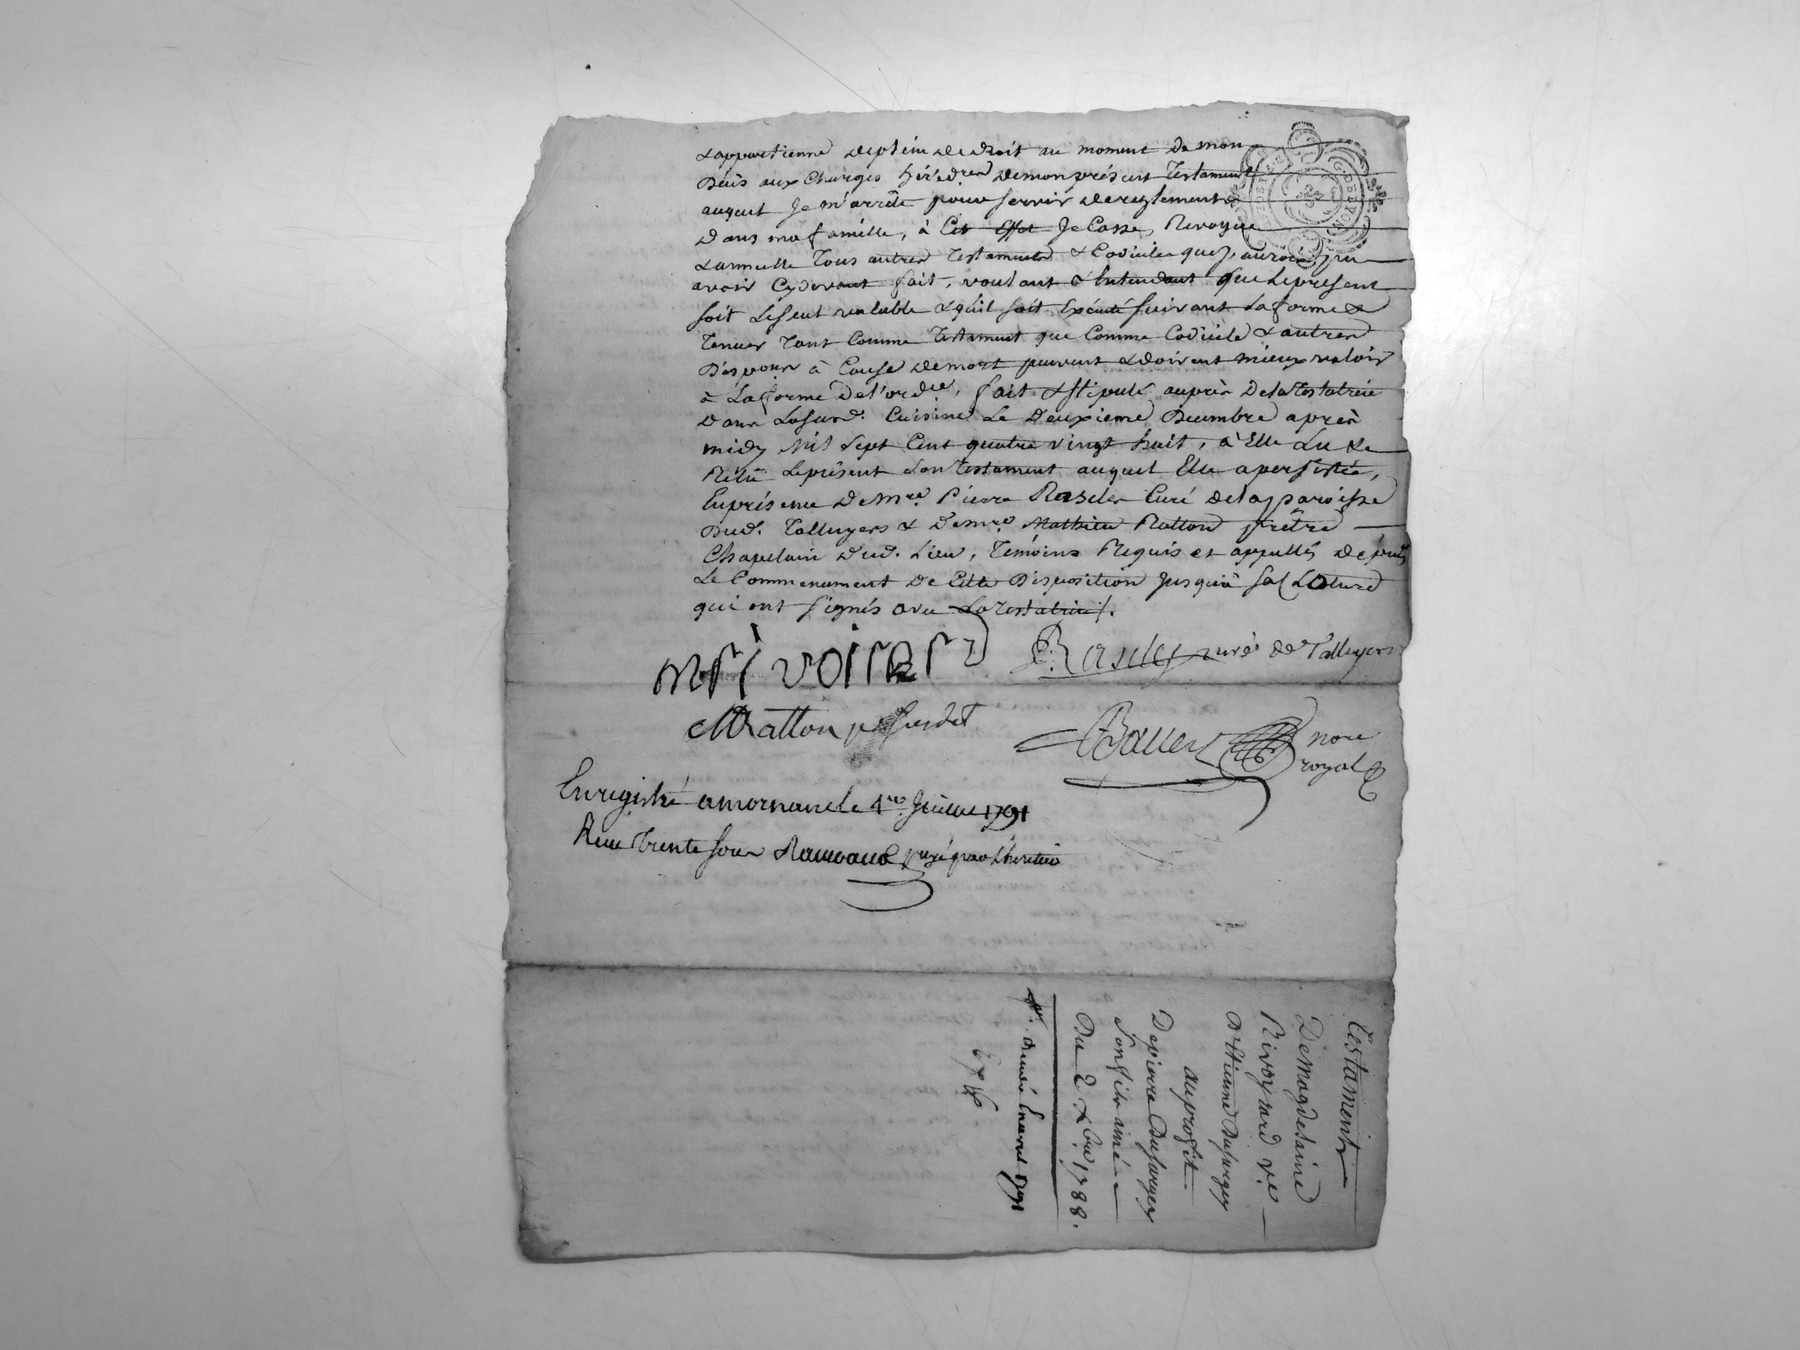 & appartienne de plein de droit au moment de mon
Deces aux charges héréd.res de mon présent Testament
auquel Je m'arrête pour servir de reglement
Dans ma famille, à Cet Effet Je Casse, Revoque
& annulle Tous autres Testaments & Codiciles que J'aurois pu
avoir Cydevant fait, voulant & Entendant que Le present
soit Le seul valable & qu'il soit Exécuté suivant sa forme &
Teneur Tant Comme Testament que Comme Codicile & autres
Dispon à Cause de mort peuvent & doivent mieux valoir
à La forme de l'ord.ce, fait & stipulé auprès De la Testatrice
Dans La sud. Cuisine Le Deuxieme Decembre après
midy Mil Sept Cent quatre vingt huit, à Elle Lu &
Relu Le présent son Testament auquel Elle a persistée,
En présence De M.re Pierre Rasclex Curé de la paroisse
Dud. Talluyers & De m.re Mathieu Ratton prêtre
Chapelain dud. Lieu, Témoins Requis et appellés depuis
Le Commencement De Cette Disposition Jusqu'à sa Cloture
qui ont signés avec La Testatrice /.
curé de Talluyers
MRatton
nore
royal
Enregistré a mornan le 1er 1791
Recu trente sous
Testament
De Magdelaine
Rivoyrard v.e
D'Etienne Dufurgey
au profit
De pierre Dufurgey
son fils ainé
Du 2 Xbre 1788.
1791